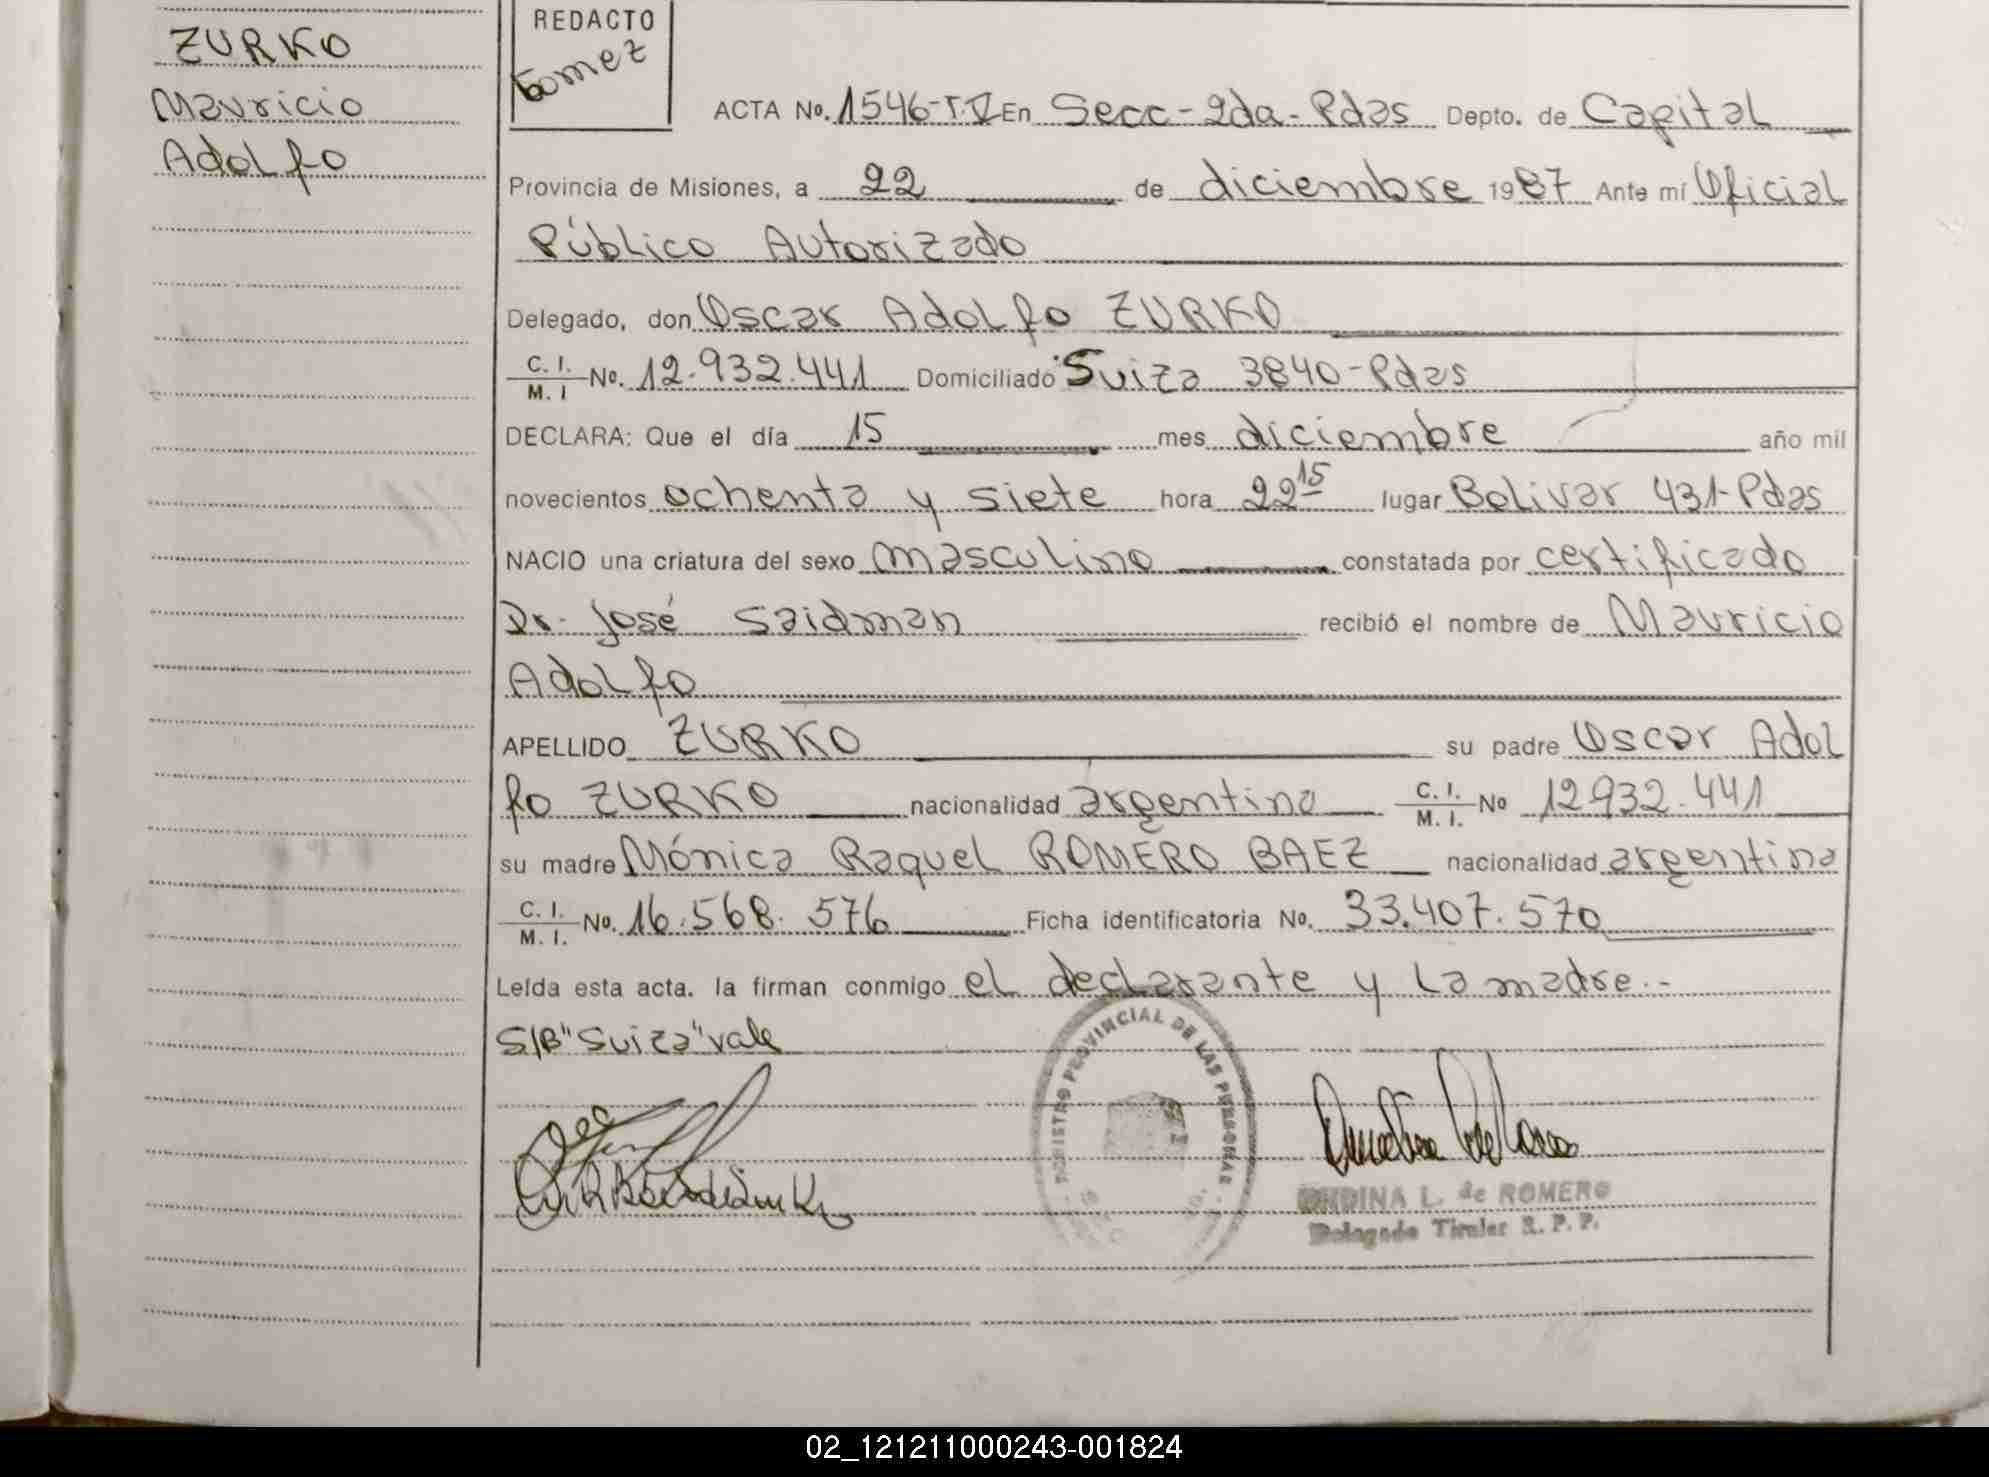 ZURKO
Mauricio
Adolfo
REDACTO
Gomez
ACTA No. 1546-T.V En Secc-2da-Pdas Depto. de Capital
Provincia de Misiones, a 22 de diciembre 1987 Ante mí Oficial
Público Autorizado
Delegado, don Oscar Adolfo ZURKO
C. I. M. I No. 12.932.441 Domiciliado Suiza 3840-Pdas
DECLARA: Que el día 15 mes diciembre año mil
novecientos ochenta y siete hora 22 15 lugar Bolivar 431-Pdas
NACIO una criatura del sexo masculino constatada por certificado
Dr. José Saidman recibió el nombre de Mauricio
Adolfo
APELLIDO ZURKO su padre Oscar Adol
fo ZURKO nacionalidad argentina C. I. M. I. No 12932.441
su madre Mónica Raquel ROMERO BAEZ nacionalidad argentina
C. I. M. I. No. 16.568.576 Ficha identificatoria No. 33.407.570
Leída esta acta. la firman conmigo el declarante y la madre.-
S/B "Suiza" vale
REGISTRO PROVINCIAL DE LAS PERSONAS
ONDINA L. de ROMERO
Delegado Titular R. P. P.
02_121211000243-001824